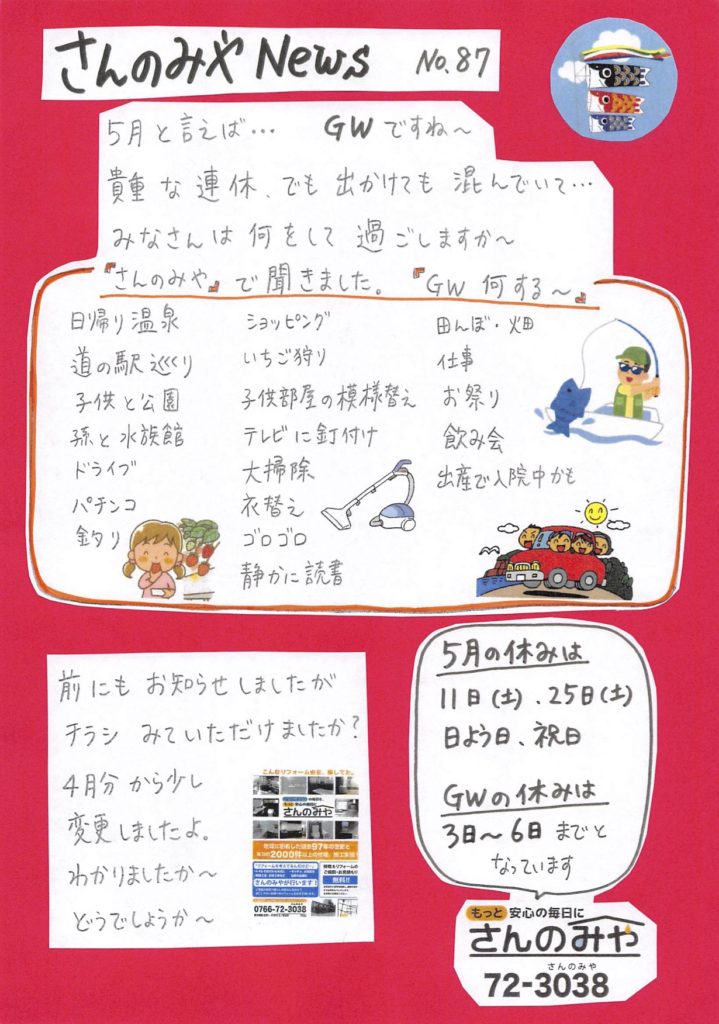 さんのみや News No.87
5月と言えば… GWですね〜
貴重な連休、でも出かけても混んでいて…
みなさんは何をして過ごしますか〜
『さんのみや』で聞きました。『GW 何する〜』
日帰り温泉
道の駅巡くり
子供と公園
孫と水族館
ドライブ
パチンコ
釣り
ショッピング
いちご狩り
子供部屋の模様替え
テレビに釘付け
大掃除
衣替え
ゴロゴロ
静かに読書
田んぼ・畑
仕事
お祭り
飲み会
出産で入院中かも
前にもお知らせしましたが
チラシ みていただけましたか?
4月分から少し
変更しましたよ。
わかりましたか〜
どうでしょうか〜
こんなリフォーム会社、探してた。
もっと安心の毎日を、
さんのみや
地域に密着した創業97年の歴史と
2000件以上の修理、施工実績!
さんのみやが行います!
無料!!
0766-72-3038
5月の休みは
11日(土)、25日(土)
日よう日、祝日
GWの休みは
3日〜6日までと
なっています
もっと 安心の毎日に
さんのみや
さんのみや
72-3038